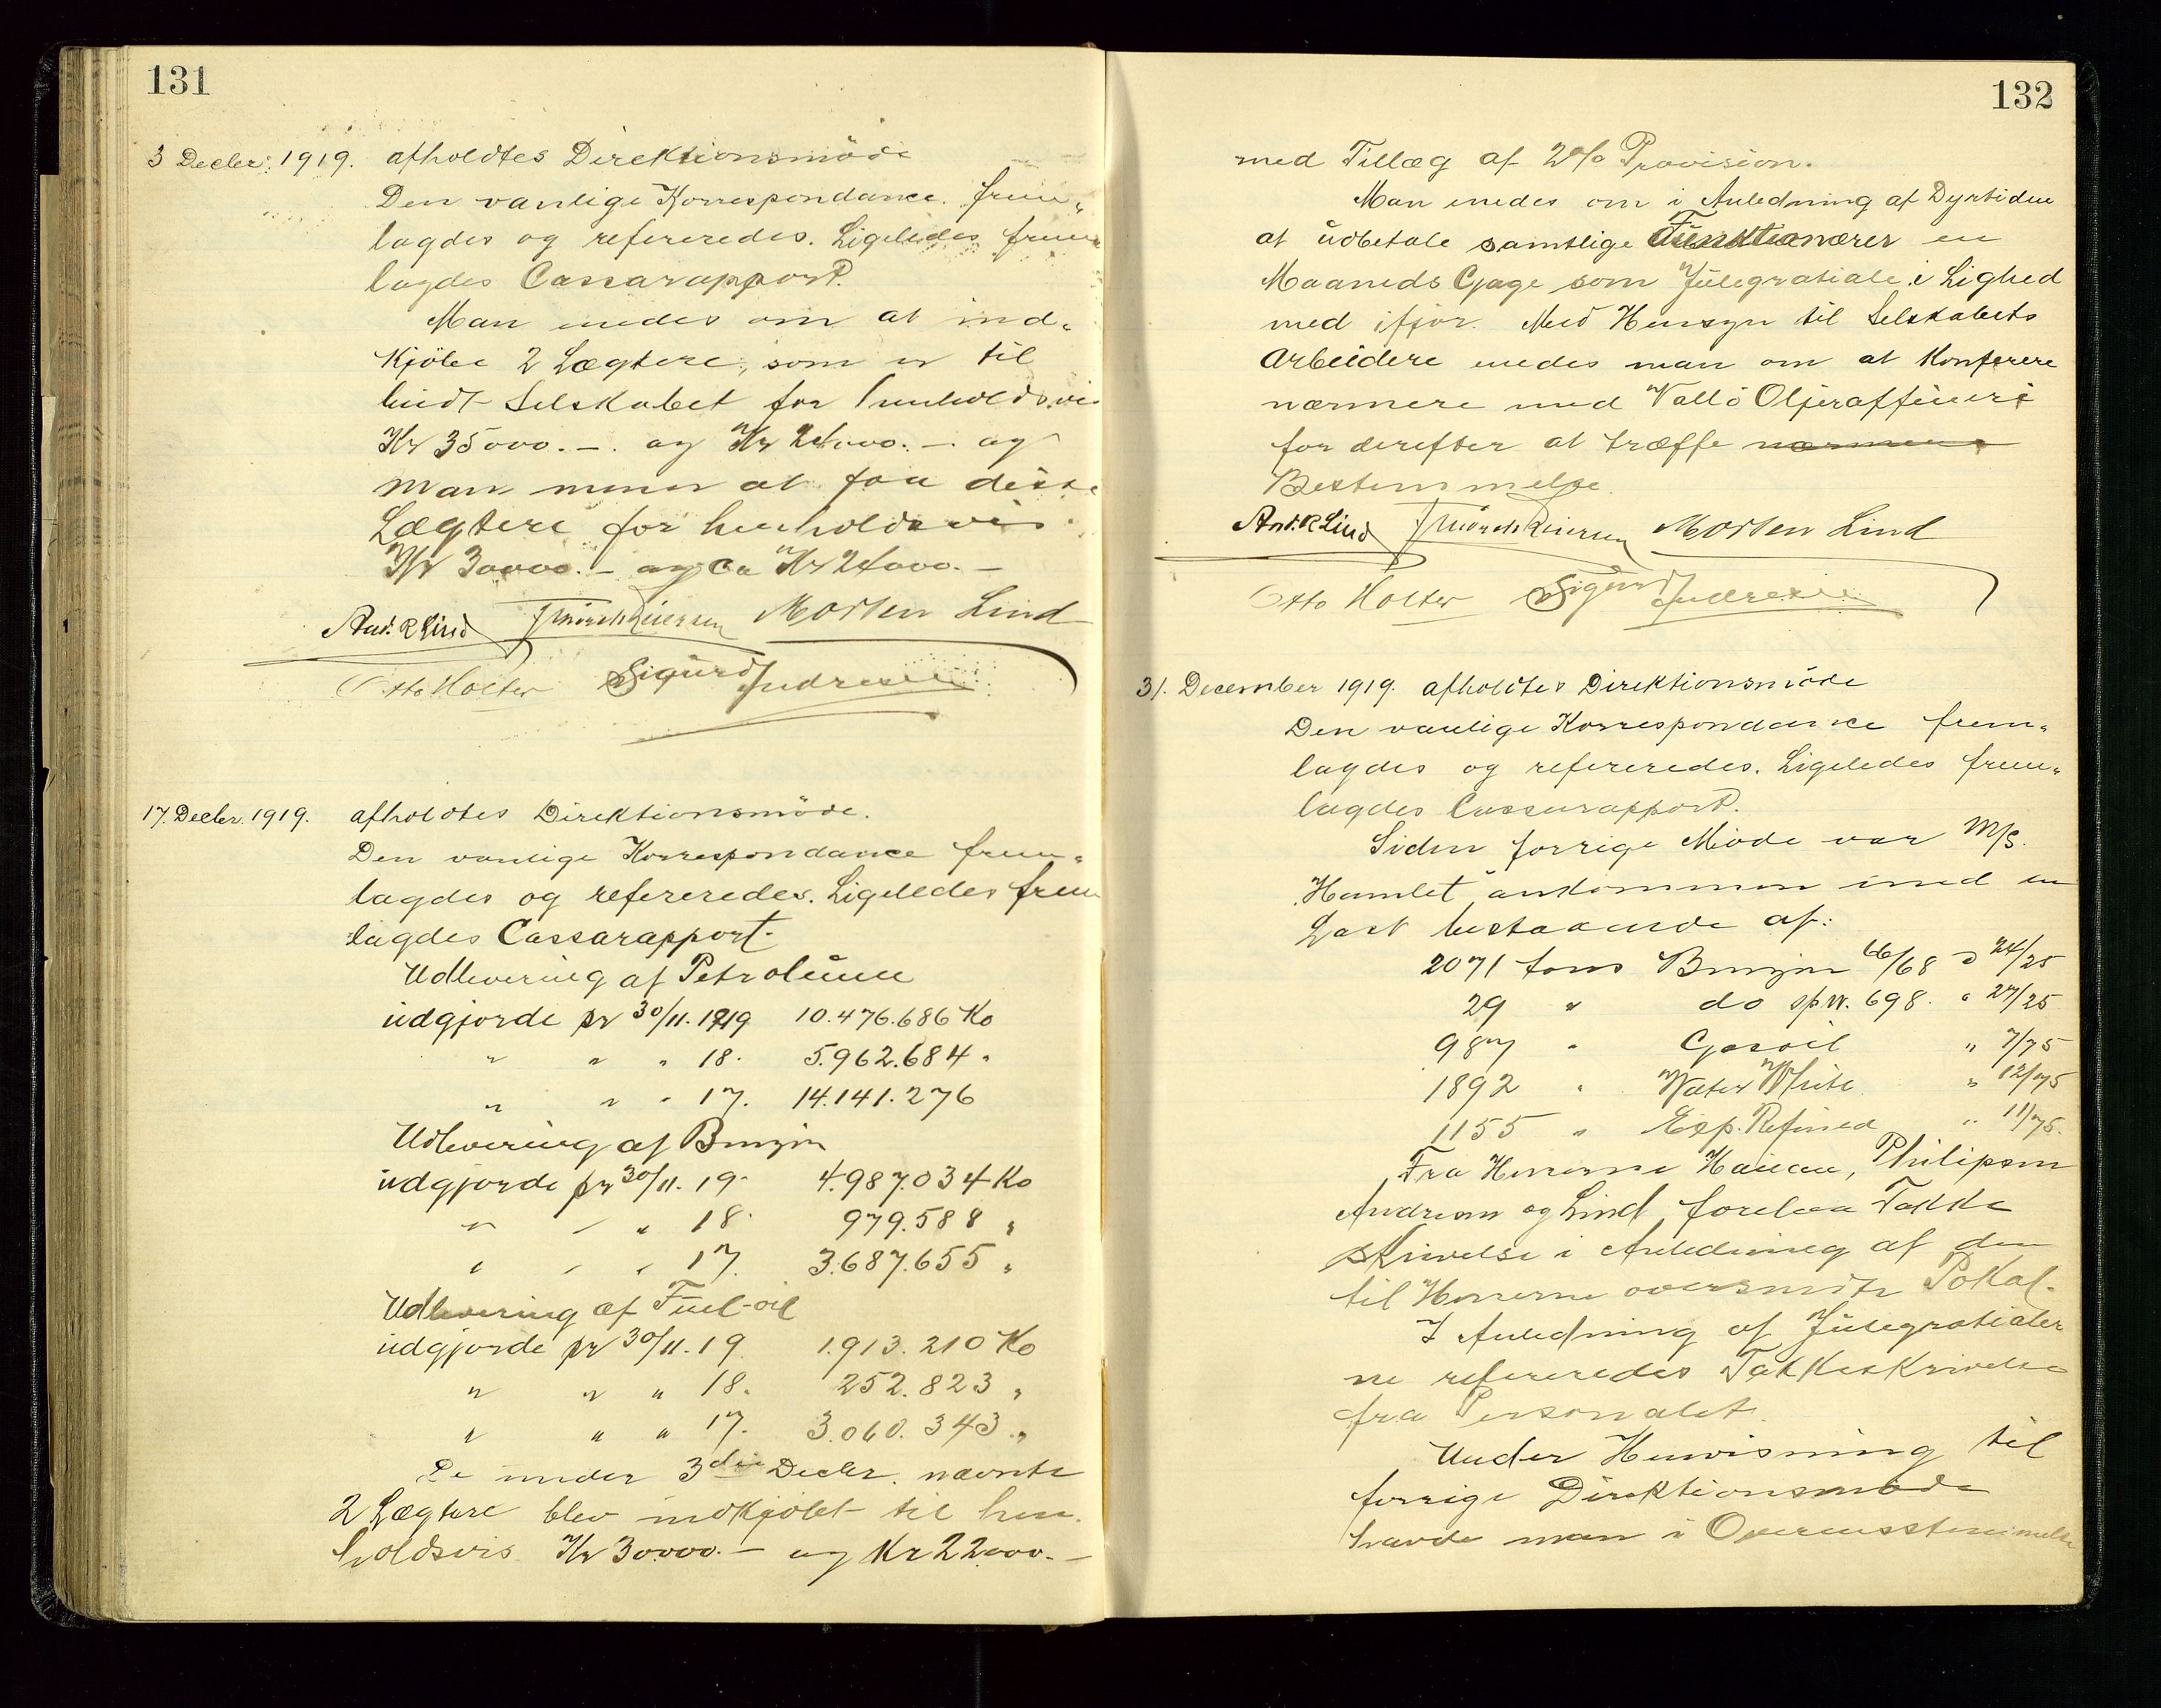 131
3 Decbr. 1919. afholdtes Direktionsmöde
Den vanlige Korrespondance frem-
lagdes og refereredes. Ligeledes frem
lagdes Cassarapport.
Man enedes om at ind-
kjöbe 2 Lægtere, som er til
budt Selskabet for henholdsvis
Kr 35000.- og Kr 24000.- og
man mener at faa disse
Lægtere for henholdsvis
Kr 30000.- og ca Kr 24000.-
And. R Lind Morten Lind
Otto Holter Sigurd
17. Decbr. 1919. afholdtes Direktionsmöde.
Den vanlige Korrespondance frem-
lagdes og refereredes. Ligeledes frem
lagdes Cassarapport.
Udlevering af Petroleum
udgjorde pr 30/11. 1919 10.476.686 Ko
" " " 18. 5.962.684 "
" " " 17. 14.141.276
Udlevering af Benzin
udgjorde pr 30/11. 19. 4.987.034 Ko
" " " 18. 979.588 "
" " " 17. 3.687.655 "
Udlevering af Fuel-oil
udgjorde pr 30/11. 19. 1.913.210 Ko
" " " 18. 252.823 "
" " " 17. 3.060.343 "
De under 3die Decbr. nævnte
2 Lægtere blev indkjöbt til hen-
holdsvis Kr 30000.- og Kr 22000.-
132
med Tillæg af 2% Provision.
Man enedes om i Anledning af Dyrtiden
at udbetale samtlige Funktionærer en
Maaneds Gage som Julegratiale i Lighed
med ifjor. Med Hensyn til Selskabets
Arbeidere enedes man om at konferere
nærmere med Vallö Oljeraffineri
for derefter at træffe nærmere
Bestemmelse.
And. R Lind Morten Lind
Otto Holter Sigurd
31. December 1919. afholdtes Direktionsmöde
Den vanlige Korrespondance frem-
lagdes og refereredes. Ligeledes frem-
lagdes Cassarapport.
Siden forrige Möde var M/S.
"Hamlet" ankommen med en
Last bestaaende af:
2071 tons Benzin 66/68 à 24/25
29 " do spv. 698. " 27/25
987 " Gasoil " 7/75
1892 " Water White " 12/75
1155 " Exp. Refined " 11/75.
Fra Herrerne Philipsen
Andresen og Lind forelaa Takke
skrivelse i Anledning af den
til Herrerne oversendte Pokal.
I Anledning af Julegratialer
ne refereredes Takkeskrivelse
fra Personalet.
Under Henvisning til
forrige Direktionsmöde
havde man i Overensstemmelse